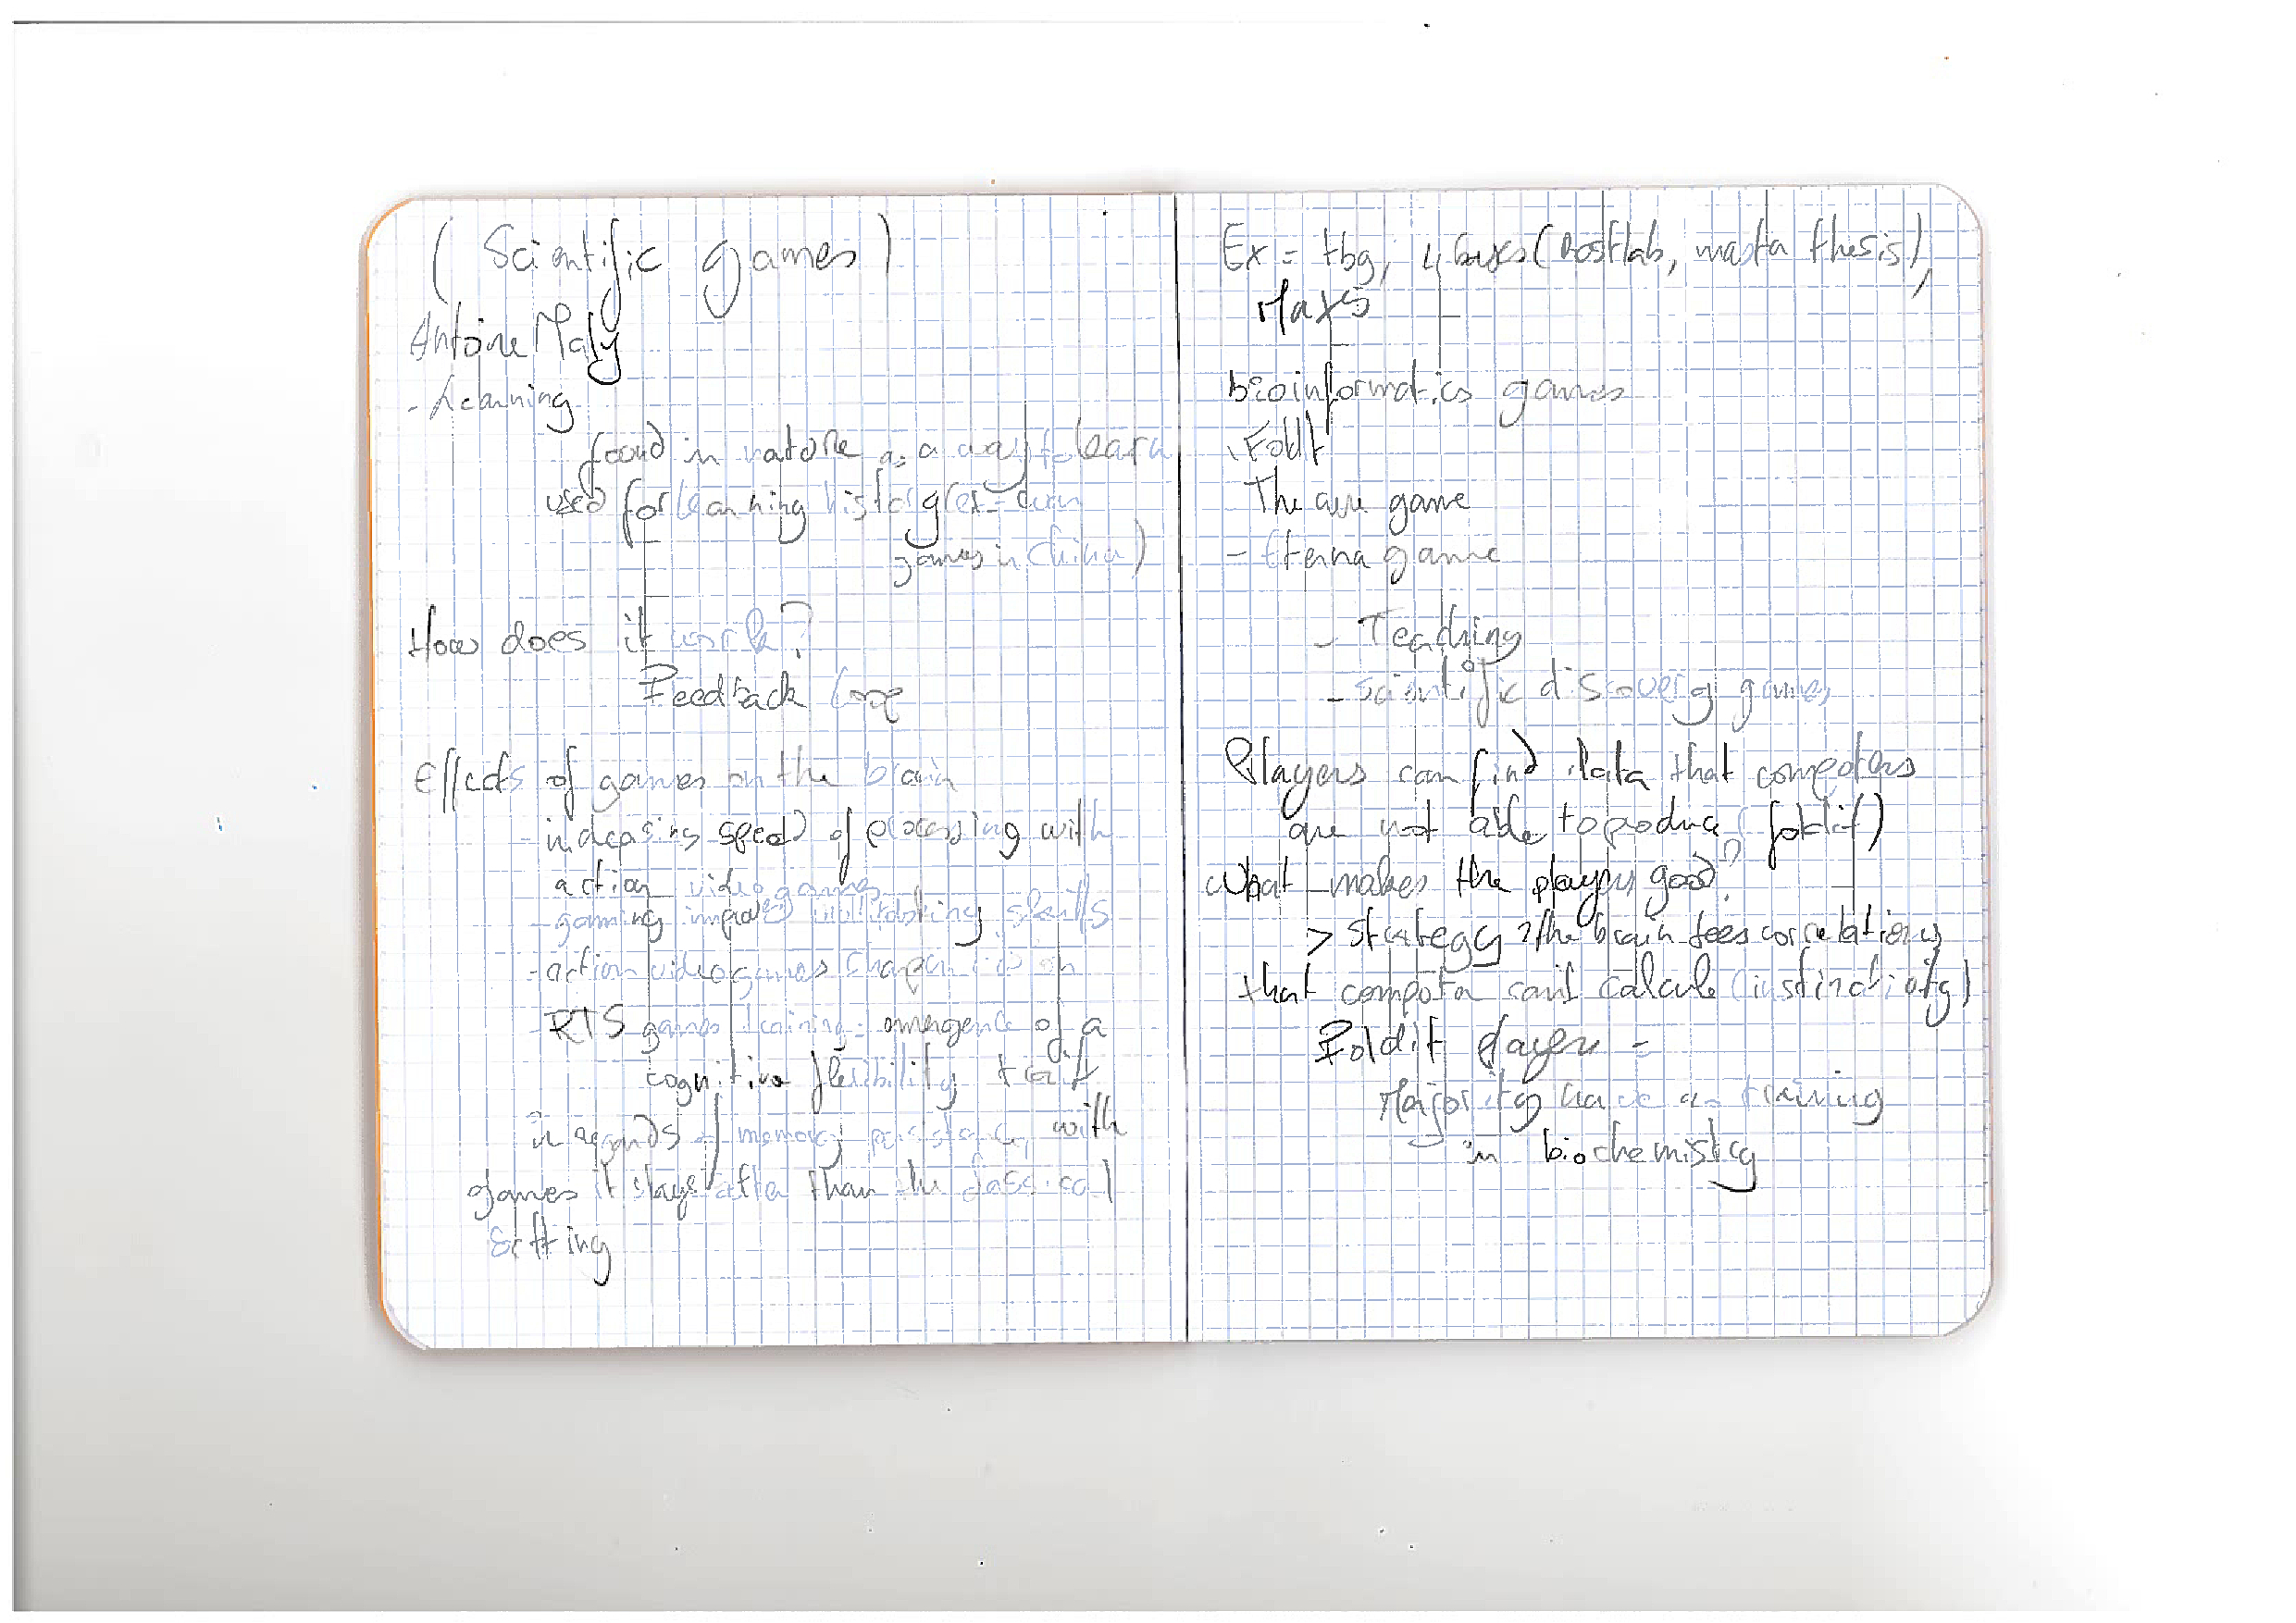 ( Scientific games )
Antoine Maly
- Learning
found in nature as a way to learn
used for learning history (ex =
games in China)
How does it work?
Feedback loop
Effects of games on the brain
- increasing speed of processing with
action video games
- gaming improves multitasking skills
- action videogames sharpen vision
- RTS games training = emergence of a
cognitive flexibility trait
in regards of memory persistence, with
games it stays after than the classical
setting
Ex = tbg, 4 bases (Rostlab, master thesis),
Mars
bioinformatics games
. Foldit
- The game
- Eterna game
- Teaching
- Scientific discovery games
Players can find data that computers
are not able to produce (foldit)
What makes the players good?
> strategy ? the brain sees correlations
that computer can't calcule (
Foldit player =
Majority have a training
in biochemistry